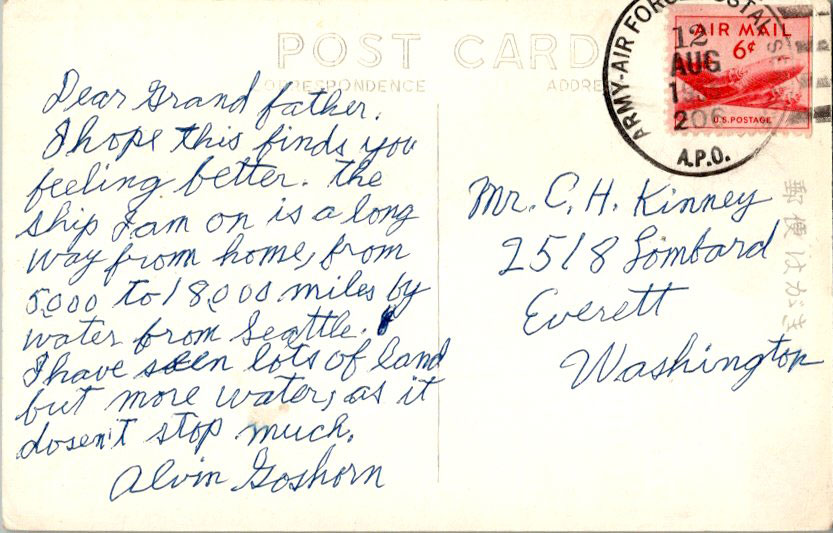 POST CARD
CORRESPONDENCE
ADDRE
Dear Grand father.
I hope this finds you
feeling better. The
ship I am on is a long
way from home, from
5,000 to 18,000 miles by
water from Seattle.
I have seen lots of land
but more water, as it
dosen't stop much.
Alvin Goshorn
ARMY-AIR FORCE POSTAL
12
AUG
206
A.P.O.
AIR MAIL
6¢
U.S. POSTAGE
Mr. C. H. Kinney
2518 Lombard
Everett
Washington
郵便はがき